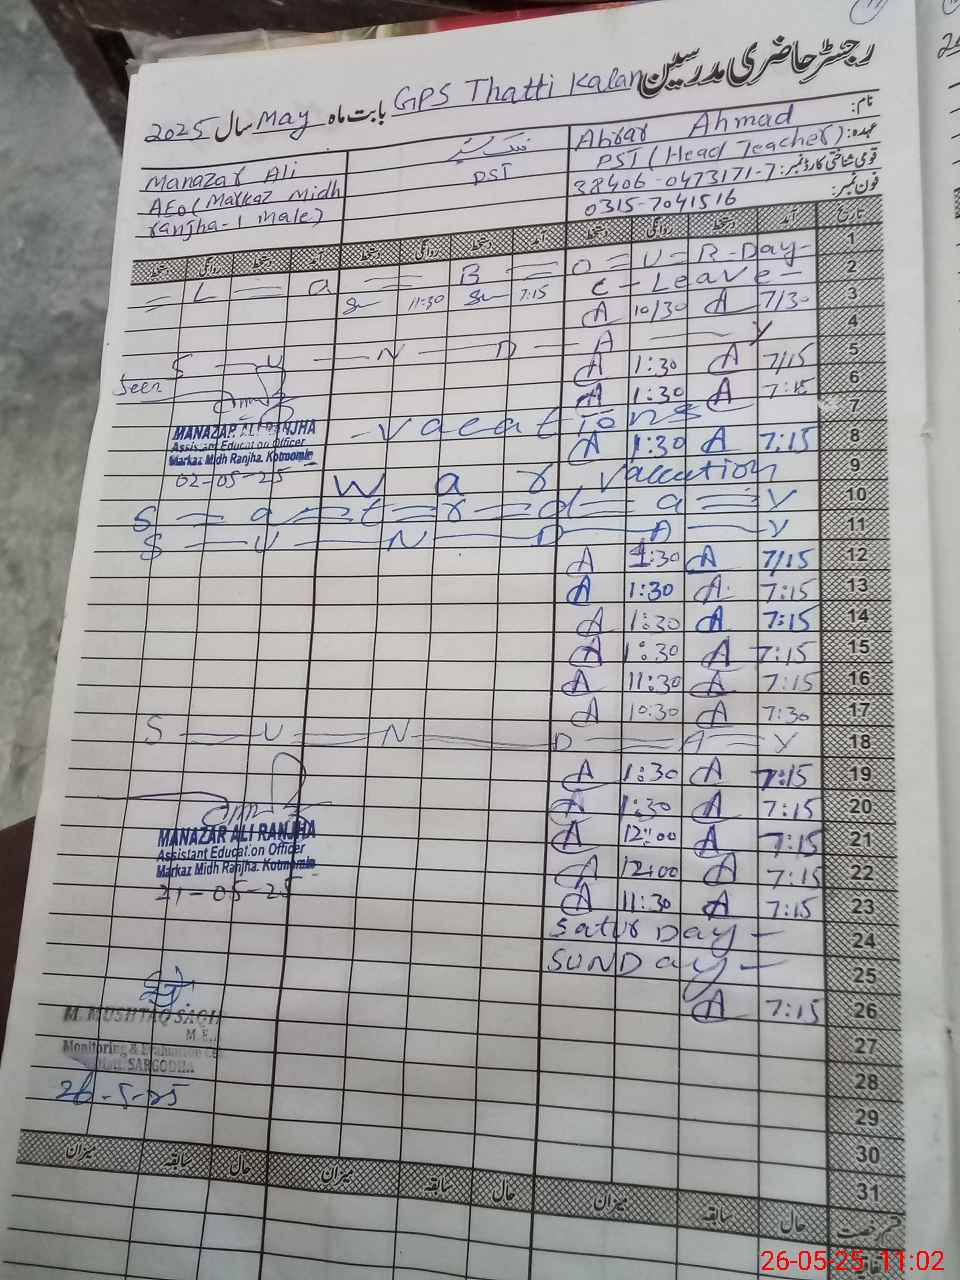 رجسٹر حاضری مدرسین GPS Thatti Kalan بابت ماہ May سال 2025
نام: Abrar Ahmad
عہدہ: PST (Head Teacher)
قومی شناختی کارڈ نمبر: 38406-0473171-7
فون نمبر: 0315-7041516
PST
Manazar Ali
AEO (Markaz Midh
ranjha-1 male)
تاریخ آمد دستخط روانگی دستخط آمد دستخط روانگی دستخط آمد دستخط روانگی دستخط
1 = L = a = B = O = U = R-Day-
2 C-Leave-
3 A 10/30 A 7/30 11:30 7:15
4 S - U - N - D - A - Y
5 A 1:30 A 7/15
6 A 1:30 A 7:15
7 -Vacations
8 A 1:30 A 7:15
9 War Vaccution
10 S = a = t = r = d = a = y
11 S - U - N - D - A - Y
12 A 1:30 A 7/15
13 A 1:30 A 7:15
14 A 1:30 A 7:15
15 A 1:30 A 7:15
16 A 11:30 A 7:15
17 A 10:30 A 7:30
18 S - U - N - D - A - Y
19 A 1:30 A 7:15
20 A 1:30 A 7:15
21 A 12:00 A 7:15
22 A 12:00 A 7:15
23 A 11:30 A 7:15
24 Satur Day -
25 SUNDay -
26 A 7:15
27
28
29
30
31
Seen
MANAZAR ALI RANJHA
Assistant Education Officer
Markaz Midh Ranjha. Kotmomin
02-05-25
MANAZAR ALI RANJHA
Assistant Education Officer
Markaz Midh Ranjha. Kotmomin
21-05-25
M. MUSHTAQ SAQI
M.E.
Monitoring & Evaluation
SARGODHA
26-5-25
حال سابقہ میزان حال سابقہ میزان حال سابقہ میزان
26-05-25 11:02